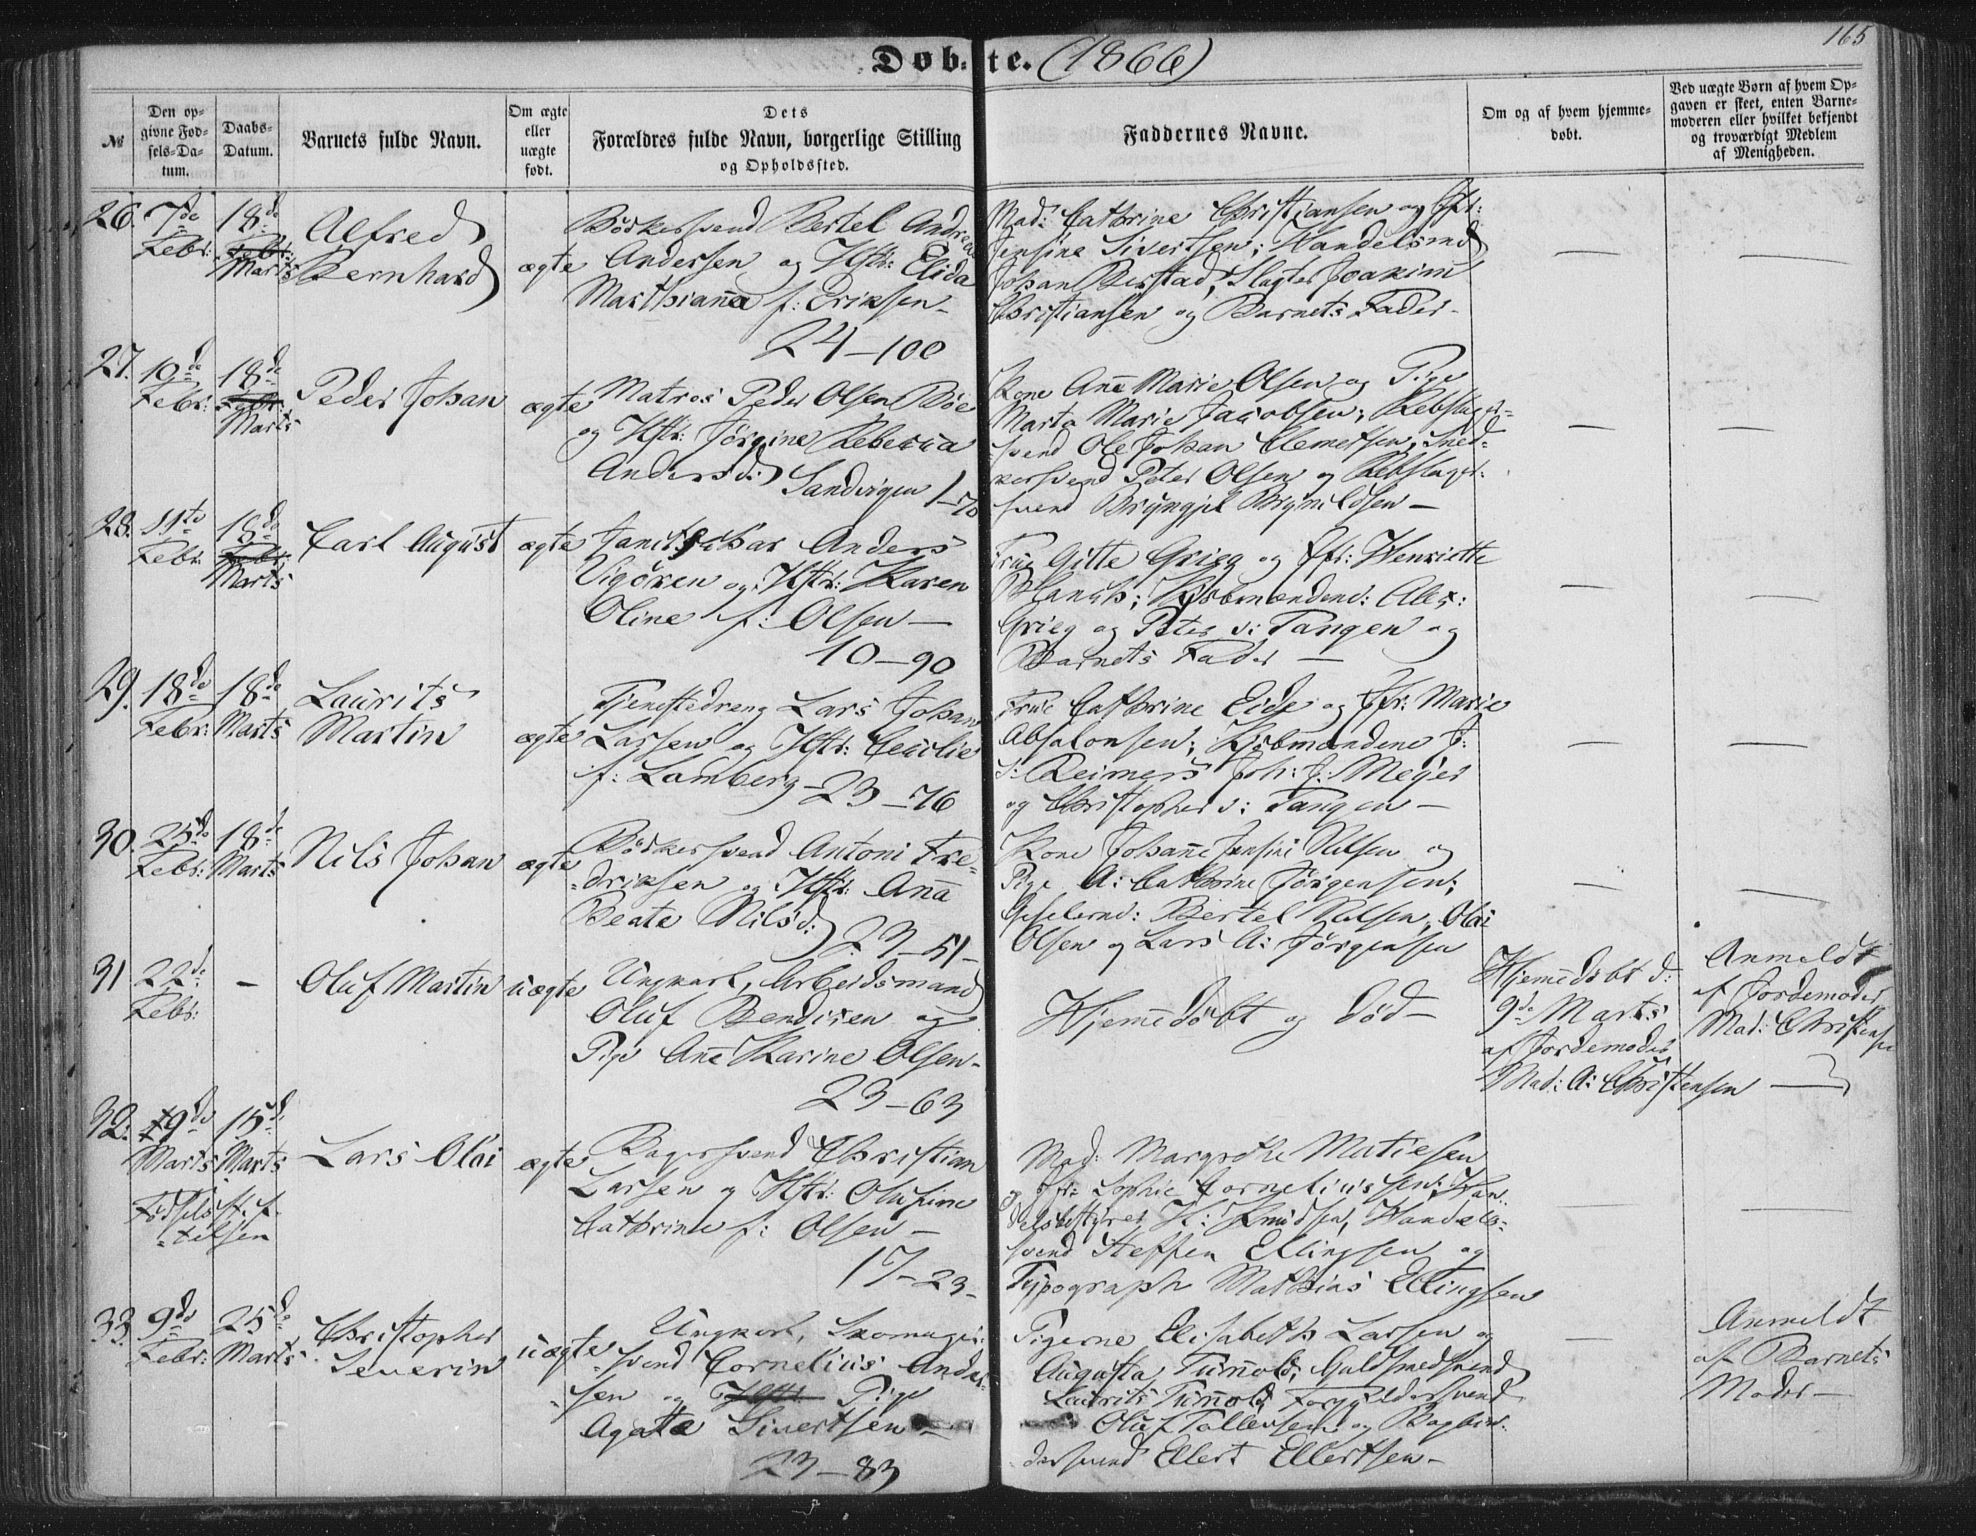 165
Døbte. (1866)
№
Den op-
givne Fød-
sels-Da-
tum.
Daabs-
Datum.
Barnets fulde Navn.
Om ægte
eller
uægte
født.
Dets
Forældres fulde Navn, borgerlige Stilling
og Opholdssted.
Faddernes Navne.
Om og af hvem hjemme-
døbt.
Ved uægte Børn af hvem Op-
gaven er skeet, enten Barne-
moderen eller hvilket bekjendt
og troværdigt Medlem
af Menigheden.
26.
7de
Febr:
18de
Febr:
Marts
Alfred
Bernhard
ægte
Bødkersvend Bertel Andreas
Andersen og Hstr: Elida
Marthianna f: Eriksen -
24-100
Mad: Cathrine Christiansen og Jfr:
Jensine Sivertsen; Handelsmd
Johan Berstad, Slagter Joakim
Christiansen og Barnets Fader -
—
—
27.
10de
Febr:
18de
Febr:
Marts
Peder Johan
ægte
Matros Peder Olsen Bøe
og Hstr: Jørgine Rebecca
Andersd: Sandvigen 1-70
Kone Anne Marie Olsen og Pige
Marta Marie Jacobsen; Rebslager-
svend Ole Johan Clemetsen, Sned-
kersvend Peter Olsen og Rebslager-
svend Bryngjel Brynildsen -
—
—
28.
11te
Febr:
18de
Febr:
Marts
Carl August
ægte
Janitschar Anders
Vigøren og Hstr: Karen
Oline f: Olsen -
10-90
Frue Gitte Grieg og Jfr: Henriette
Hanch; Kjøbmændene: Alex:
Grieg og Peter v: Tangen og
Barnets Fader -
—
—
29.
18de
Febr:
18de
Marts
Laurits
Martin
ægte
Tjenestedreng Lars Johan
Larsen og Hstr: Cecilie
f: Lamberg - 23-76
Frue Cathrine Eide og Jfr: Marie
Absalonsen; Kjøbmændene J:
v: Reimers Joh: J: Mejer
og Christopher v: Tangen -
—
—
30.
25de
Febr:
18de
Marts
Nils Johan
ægte
Bødkersvend Antoni Fre-
driksen og Hstr: Anna
Beate Nilsd: 23-51-
Kone Johanne Jensine Nilsen og
Pige A: Cathrine Jørgensen;
Bertel Nilsen, Olai
Olsen og Lars A: Jørgensen
—
—
31
22de
Febr:
-
Oluf Martin
uægte
Ungkarl, Arbeidsmand
Oluf Bendixen og
Pige Anne Karine Olsen -
23-63
Hjemedøbt og død -
Hjemedøbt d:
9de Marts
af Jordemoder
Mad: A: Christensen
Anmeldt
af Jordemoder
Mad: Christensen
—
32.
19de
Marts
Fødsels
15de
Marts
Lars Olai
ægte
Bagersvend Christian
Larsen og Hstr: Olufine
Cathrine f: Olsen -
17-23-
Mad: Margrethe Matiesen
og Jfr: Sophie Corneliussen; Han-
delsbestyrer H: Knudsen, Handels-
svend Steffen Ellingsen og
Typograph Mathias Ellingsen
—
—
33.
9de
Febr:
25de
Marts
Christopher
Severin
uægte
Ungkarl, Skomager-
svend Cornelius Ander-
sen og Hstr: Pige
Agata Sivertsen -
23-83
Pigerne Elisabeth Larsen og
Augusta Tumold; Guldsmedsvend
Laurits Tumold, Forgyldersvend
Oluf Tollevsen og Bogbin-
dersvend Ellert Ellertsen -
—
Anmeldt
af Barnets
Moder -